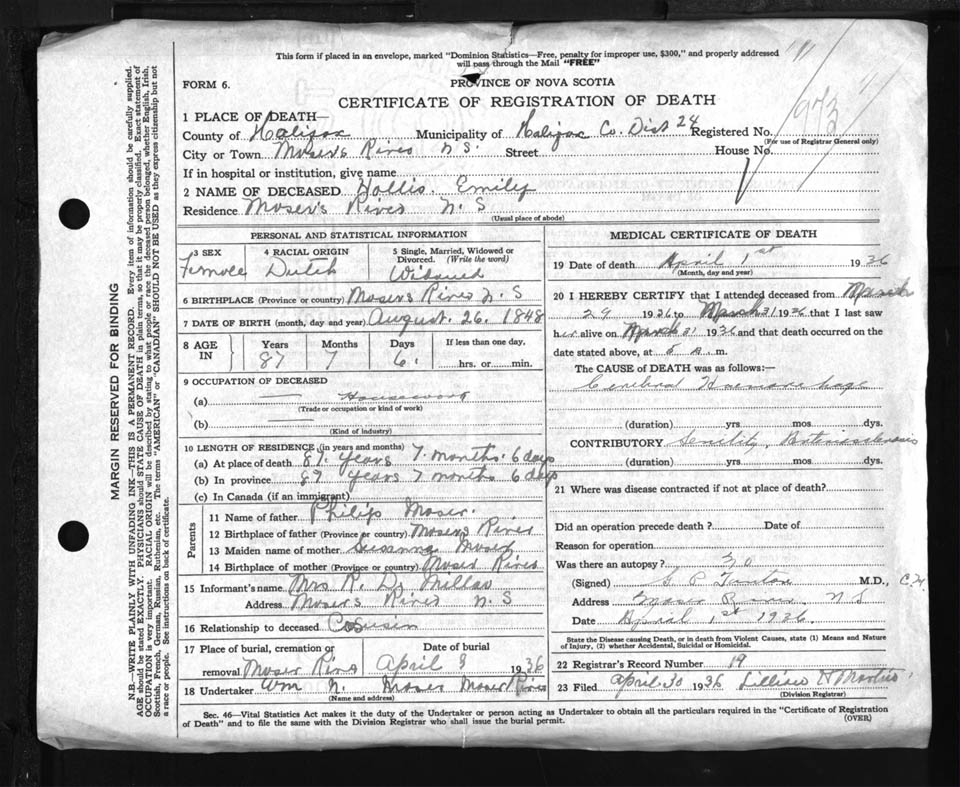 This form if placed in an envelope, marked "Dominion Statistics—Free, penalty for improper use, $300," and properly addressed
will pass through the Mail "FREE"
FORM 6.
PROVINCE OF NOVA SCOTIA
CERTIFICATE OF REGISTRATION OF DEATH
1 PLACE OF DEATH—
County of Halifax Municipality of Halifax Co. Dist 24 Registered No.
(For use of Registrar General only)
City or Town Mosers River N S. Street House No.
If in hospital or institution, give name
2 NAME OF DECEASED Hollis Emily
Residence Moser's River N. S
(Usual place of abode)
PERSONAL AND STATISTICAL INFORMATION
3 SEX Female
4 RACIAL ORIGIN Dutch
5 Single, Married, Widowed or Divorced. (Write the word) Widowed
6 BIRTHPLACE (Province or country) Mosers River N. S
7 DATE OF BIRTH (month, day and year) August. 26. 1848
8 AGE IN Years Months Days If less than one day,
87 7 6. hrs. or min.
9 OCCUPATION OF DECEASED
(a) — Housework
(Trade or occupation or kind of work)
(b) —
(Kind of industry)
10 LENGTH OF RESIDENCE (in years and months)
(a) At place of death 87 Years 7 Months. 6 days
(b) In province 87 Years 7 months 6 days
(c) In Canada (if an immigrant)
Parents
11 Name of father Philip Moser
12 Birthplace of father (Province or country) Mosers River
13 Maiden name of mother Susanna Moser
14 Birthplace of mother (Province or country) Moser River
15 Informant's name Mrs R. D.
Address Mosers River N. S
16 Relationship to deceased Cousin
17 Place of burial, cremation or removal Moser River
Date of burial April 3 1936
18 Undertaker Wm N. Moser Moser River
(Name and address)
MEDICAL CERTIFICATE OF DEATH
19 Date of death April 1st 1936
(Month, day and year)
20 I HEREBY CERTIFY that I attended deceased from March
29 1936 to March 31 1936 that I last saw
her alive on March 31 1936 and that death occurred on the
date stated above, at 5 a. m.
The CAUSE OF DEATH was as follows:—
Cerebral Haemorrhage
(duration) yrs mos dys.
CONTRIBUTORY Senility,
(duration) yrs. mos. dys.
21 Where was disease contracted if not at place of death?
Did an operation precede death? Date of
Reason for operation
Was there an autopsy? No
(Signed) M.D., C.M
Address Moser River N S
Date April 1st 1936.
State the Disease causing Death, or in death from Violent Causes, state (1) Means and Nature of Injury, (2) whether Accidental, Suicidal or Homicidal.
22 Registrar's Record Number 19
23 Filed April 30 1936 Lillian H
(Division Registrar)
Sec. 46—Vital Statistics Act makes it the duty of the Undertaker or person acting as Undertaker to obtain all the particulars required in the "Certificate of Registration
of Death" and to file the same with the Division Registrar who shall issue the burial permit. (OVER)
MARGIN RESERVED FOR BINDING
N.B.—WRITE PLAINLY WITH UNFADING INK—THIS IS A PERMANENT RECORD. Every item of information should be carefully supplied.
AGE should be stated EXACTLY. PHYSICIANS should STATE CAUSE OF DEATH in plain terms, so that it may be properly classified. Exact statement of
OCCUPATION is very important. RACIAL ORIGIN will be described by stating to what people or race the deceased person belonged, whether English, Irish,
Scottish, French, German, Russian, Ruthenian, etc. The terms "AMERICAN" or "CANADIAN" SHOULD NOT BE USED as they express citizenship but not
a race or people. See instructions on back of certificate.